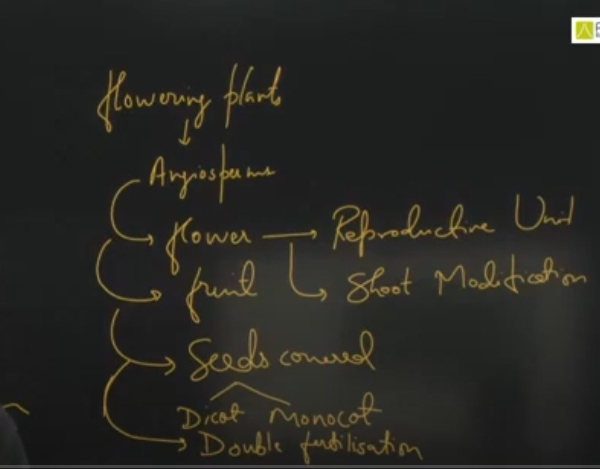 flowering plants
Angiosperms
flower → Reproductive Unit
fruit Shoot Modification
Seeds covered
Dicot Monocot
Double fertilisation